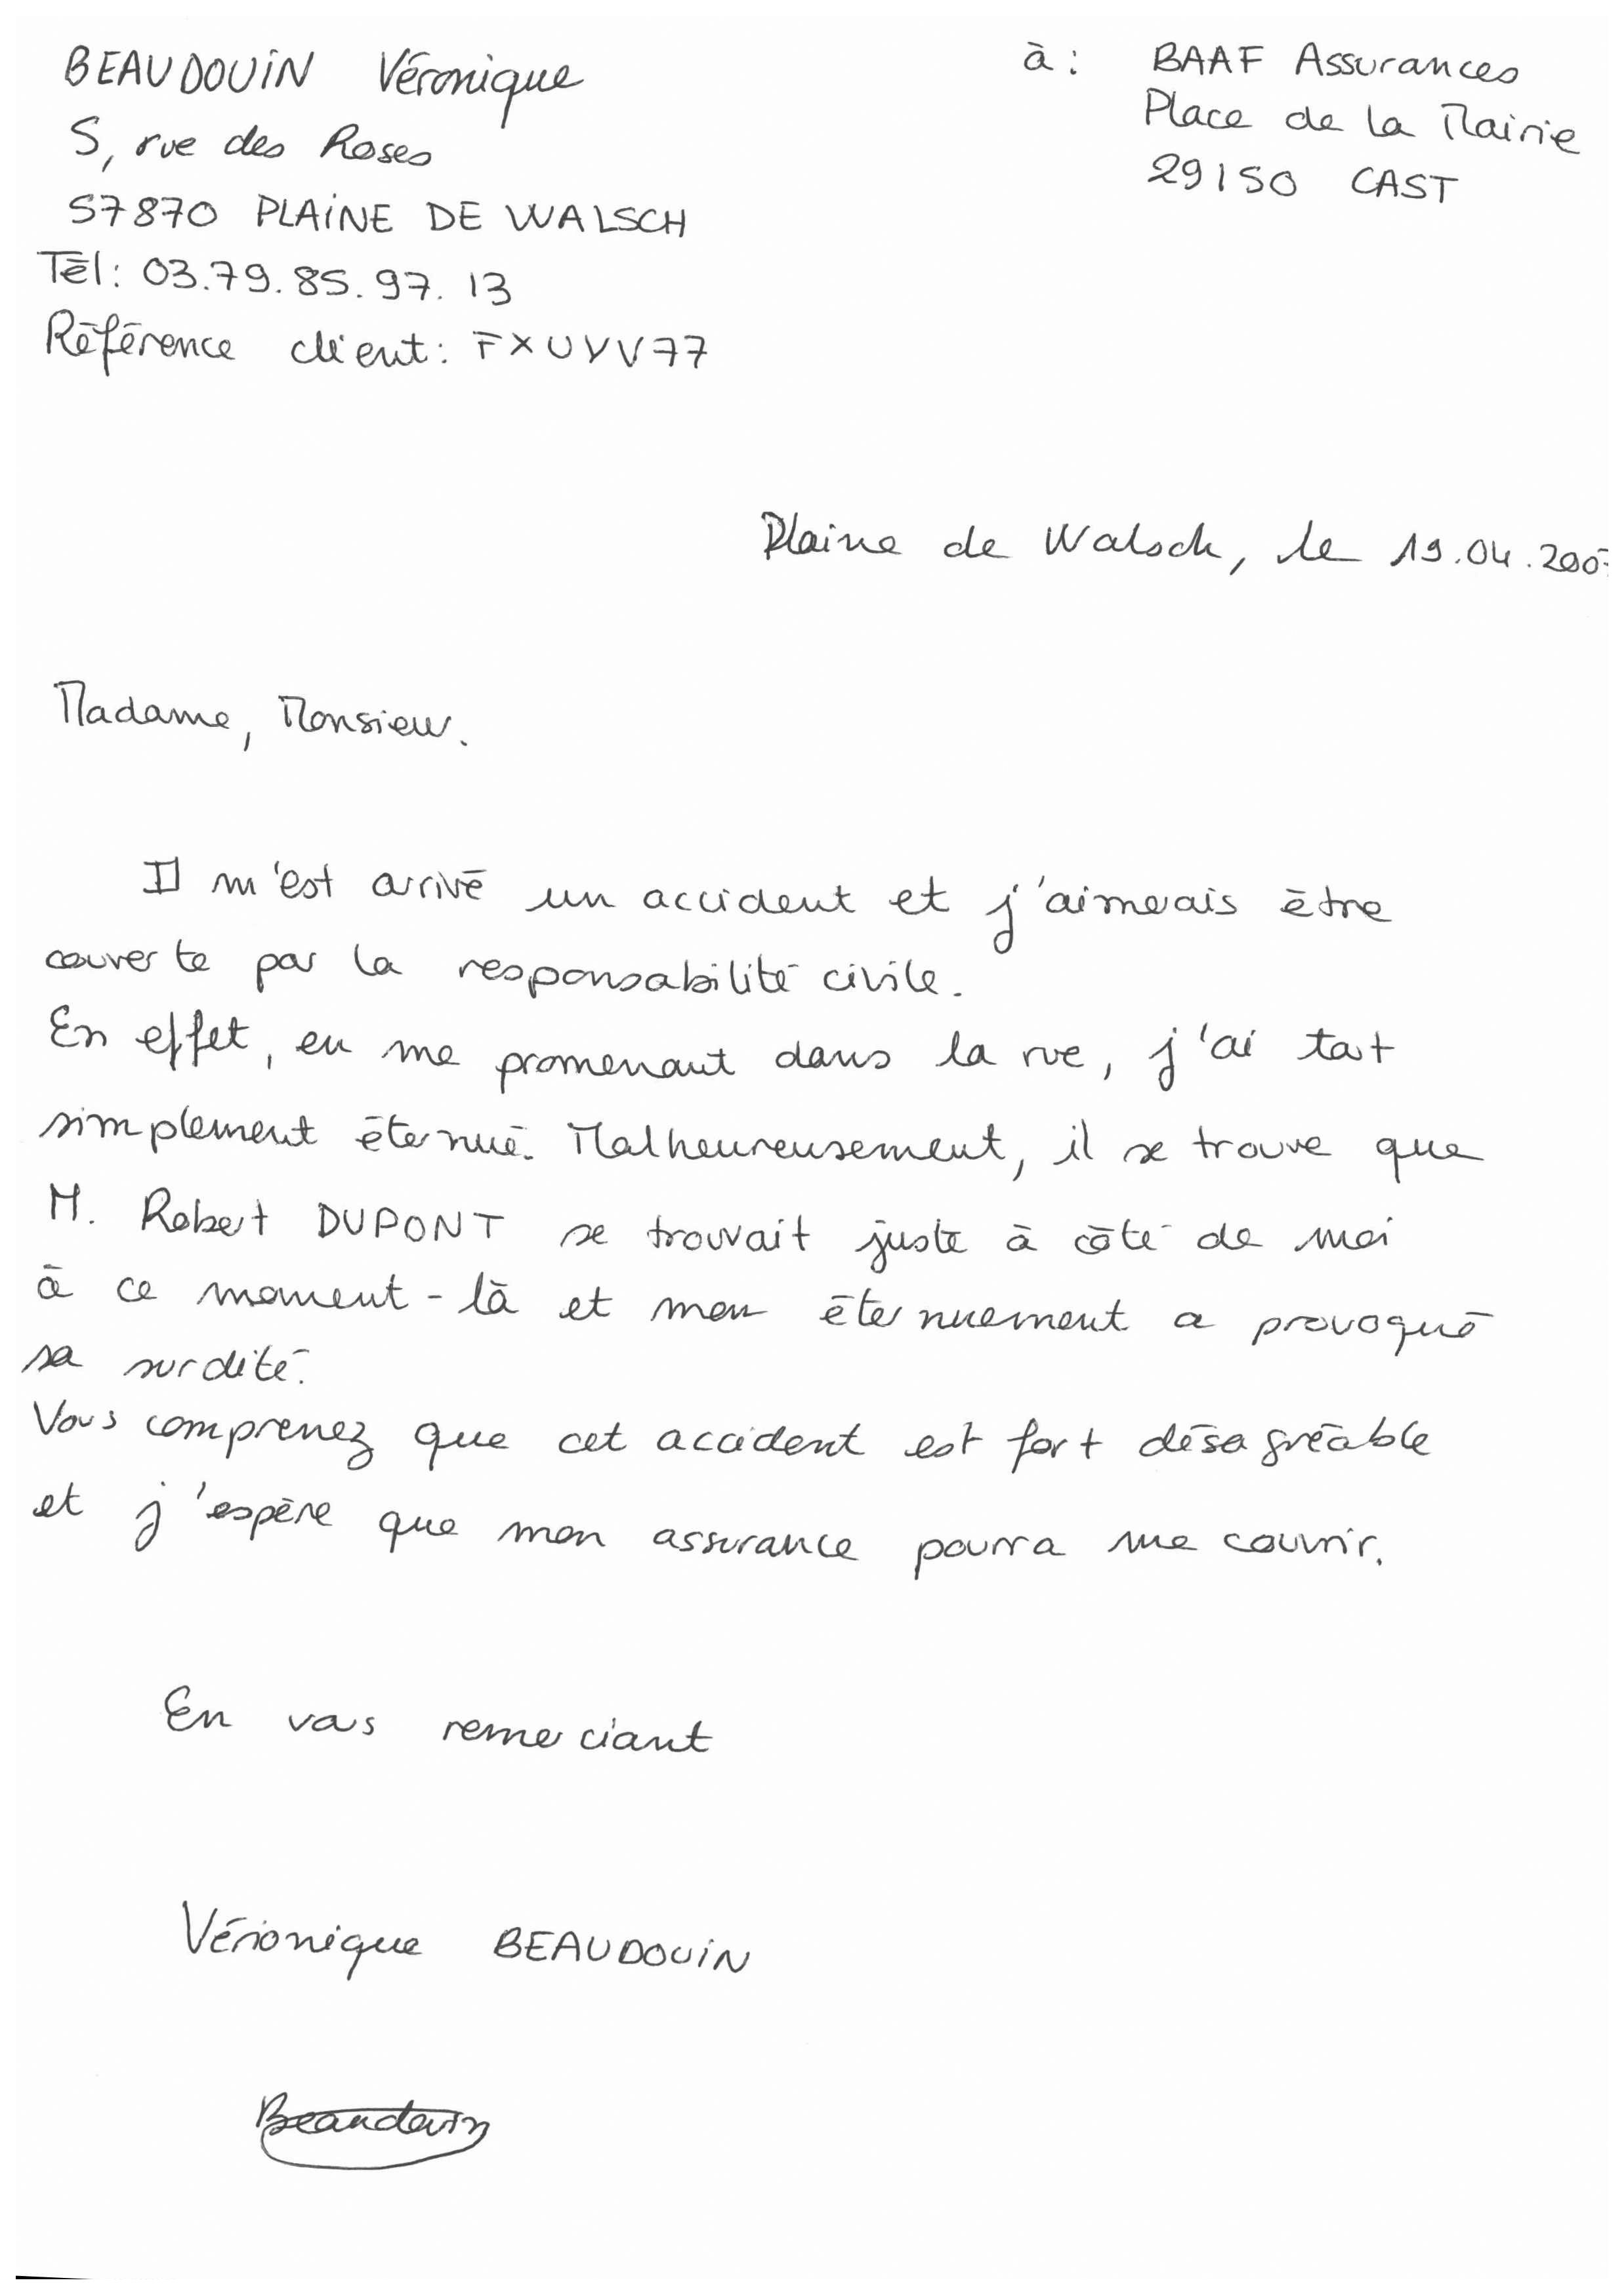 BEAUDOUIN Véronique
5, rue des Roses
57870 PLAINE DE WALSCH
Tél: 03.79.85.97.13
Référence client: FXUVV77
à: BAAF Assurances
Place de la Mairie
29150 CAST
Plaine de Walsch, le 19.04.200
Madame, Monsieur.
Il m'est arrivé un accident et j'aimerais être
couverte par la responsabilité civile.
En effet, en me promenant dans la rue, j'ai tout
simplement éternué. Malheureusement, il se trouve que
M. Robert DUPONT se trouvait juste à côté de moi
à ce moment-là et mon éternuement a provoqué
sa surdité.
Vous comprenez que cet accident est fort désagréable
et j'espère que mon assurance pourra me couvrir.
En vous remerciant
Véronique BEAUDOUIN
Beaudouin